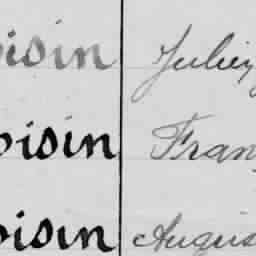 oisin Julien
oisin Fran
oisin Augus